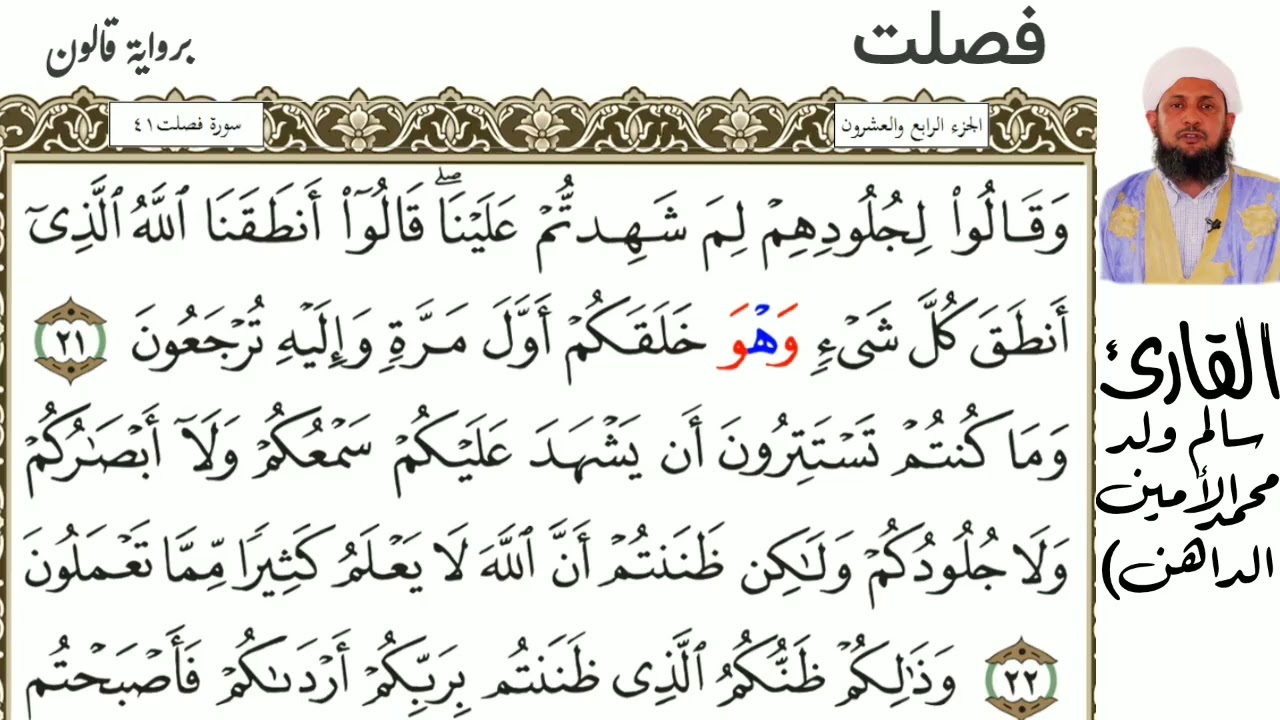 فصلت
برواية قالون
الجزء الرابع والعشرون
سورة فصلت ٤١
وَقَالُواْ لِجُلُودِهِمْ لِمَ شَهِدتُّمْ عَلَيْنَاۖ قَالُوٓاْ أَنطَقَنَا ٱللَّهُ ٱلَّذِىٓ
أَنطَقَ كُلَّ شَىْءٍ وَهْوَ خَلَقَكُمْ أَوَّلَ مَرَّةٍ وَإِلَيْهِ تُرْجَعُونَ ٢١
وَمَا كُنتُمْ تَسْتَتِرُونَ أَن يَشْهَدَ عَلَيْكُمْ سَمْعُكُمْ وَلَآ أَبْصَٰرُكُمْ
وَلَا جُلُودُكُمْ وَلَٰكِن ظَنَنتُمْ أَنَّ ٱللَّهَ لَا يَعْلَمُ كَثِيرًا مِّمَّا تَعْمَلُونَ
٢٢ وَذَٰلِكُمْ ظَنُّكُمُ ٱلَّذِى ظَنَنتُم بِرَبِّكُمْ أَرْدَىٰكُمْ فَأَصْبَحْتُم
القارئ
سالم ولد
محمد الأمين
الداهن)